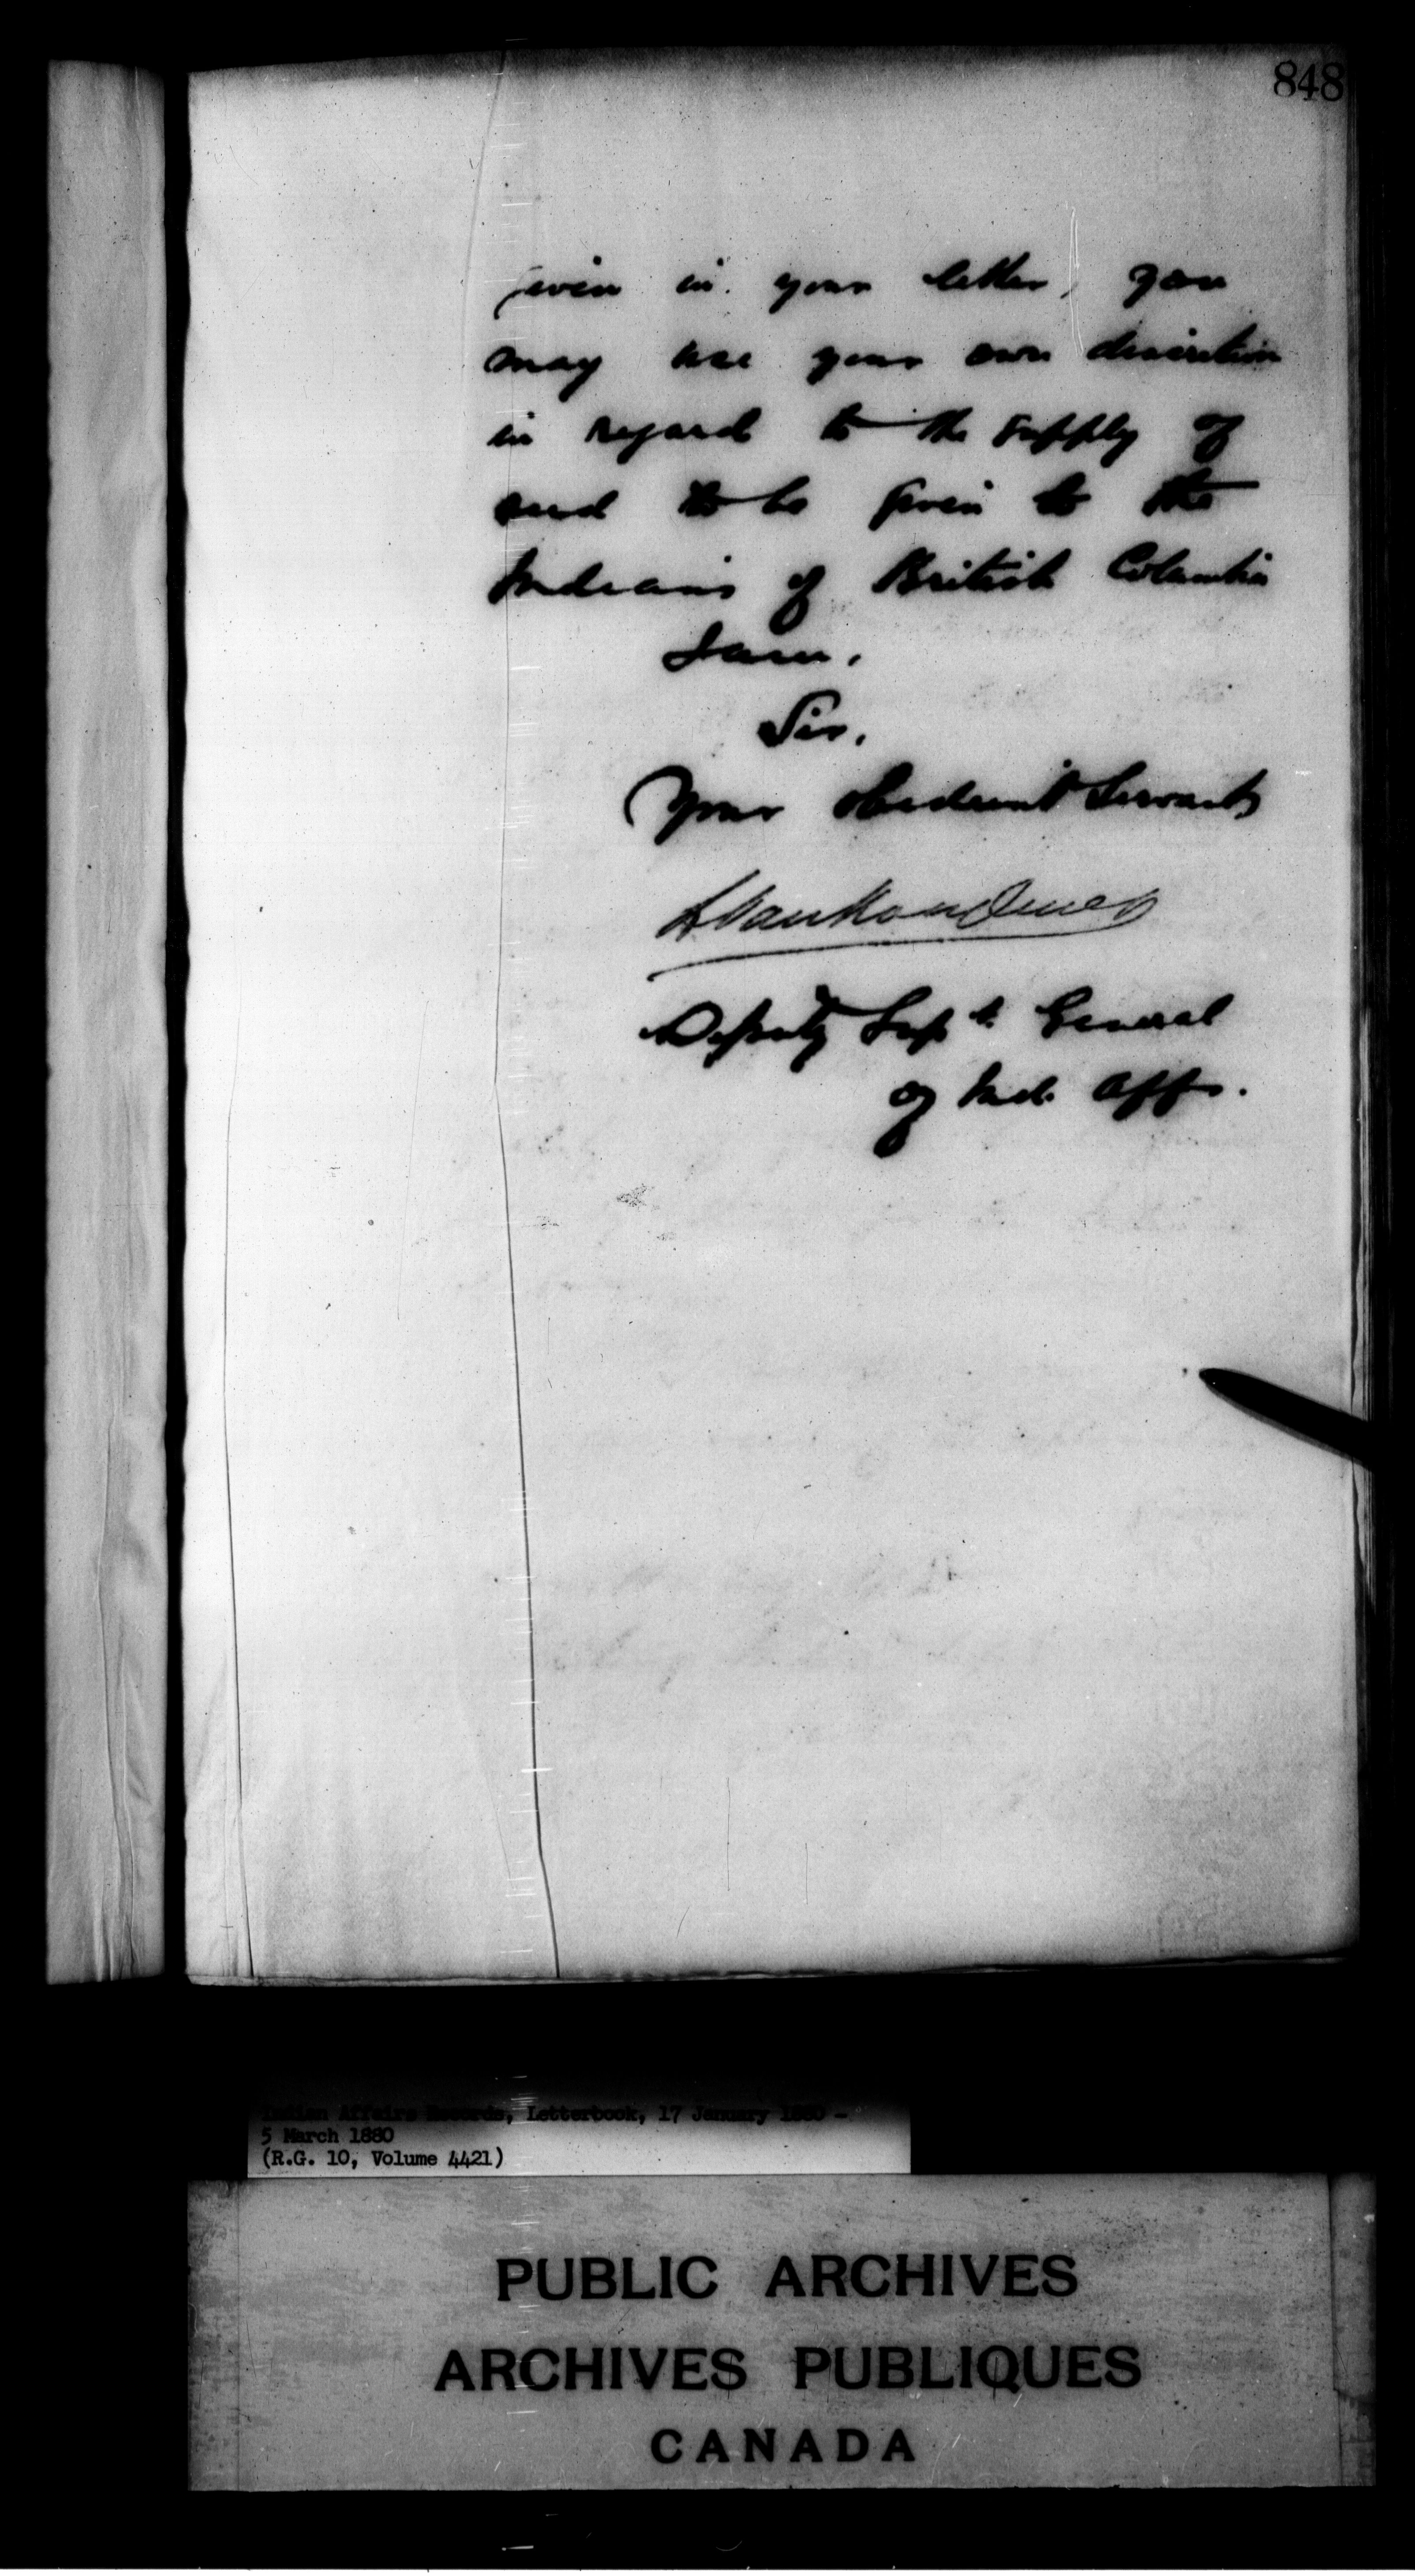 848
given in your letter, you
may use your own discretion
in regard to the supply of
seed to be given to the
Indians of British Columbia
I am,
Sir,
Your obedient Servant
L VanKoughnet
Deputy Supt. General
of Ind. Affs.
Indian Affairs Records, Letterbook, 17 January 1880 -
5 March 1880
(R.G. 10, Volume 4421)
PUBLIC ARCHIVES
ARCHIVES PUBLIQUES
CANADA